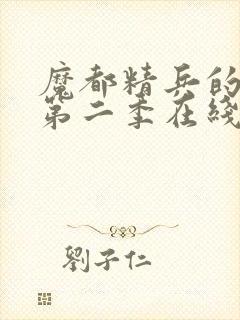 魔都精兵的
第二季在綫
劉子仁